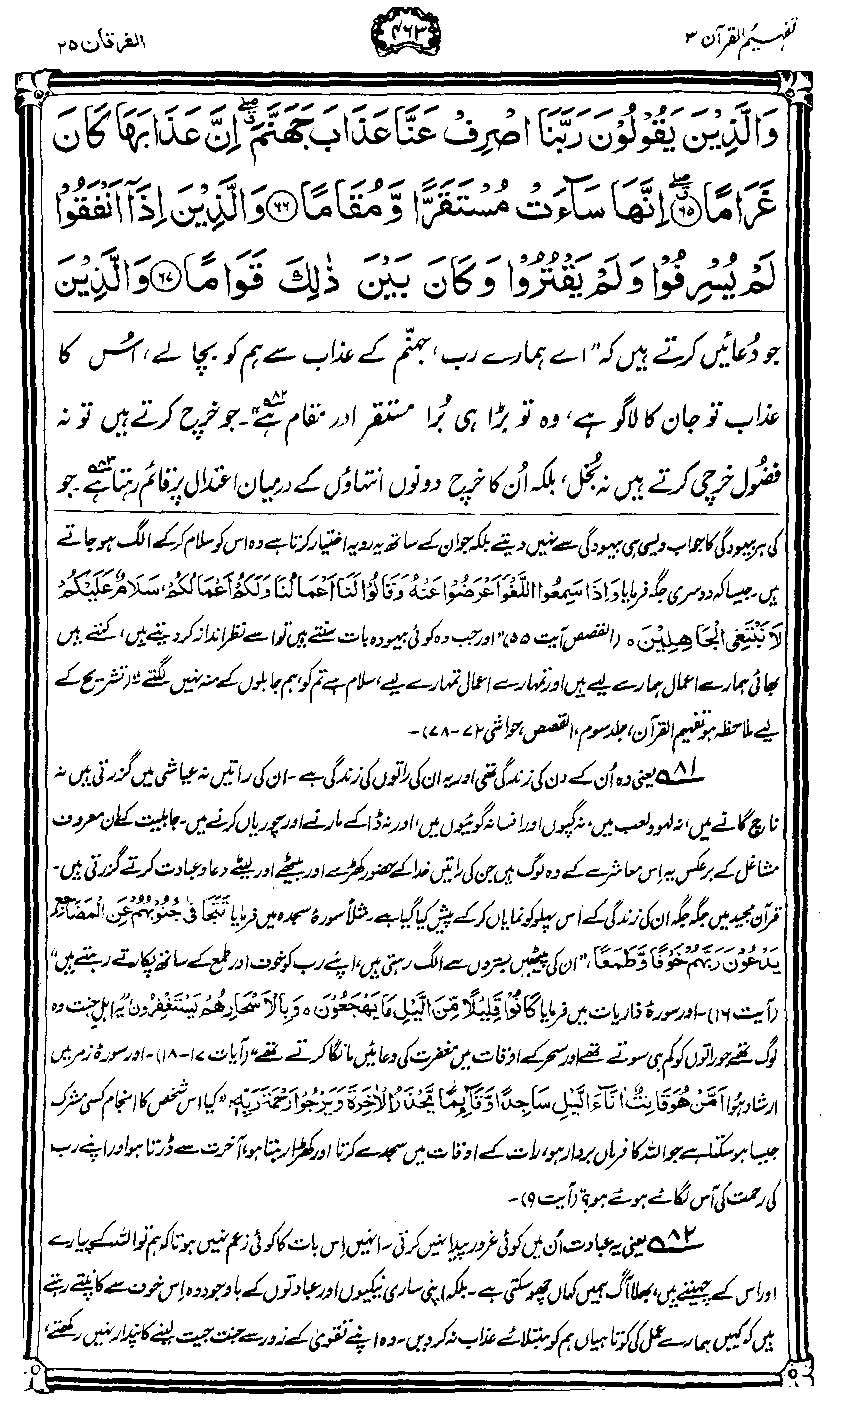 تفہیم القرآن ۳
۴۶۳
الفرقان ۲۵
وَالَّذِيْنَ يَقُوْلُوْنَ رَبَّنَا اصْرِفْ عَنَّا عَذَابَ جَهَنَّمَ ۖ اِنَّ عَذَابَهَا كَانَ
غَرَامًا ۖ ﴿۶۵﴾ اِنَّهَا سَآءَتْ مُسْتَقَرًّا وَّ مُقَامًا ﴿۶۶﴾ وَالَّذِيْنَ اِذَآ اَنْفَقُوْا
لَمْ يُسْرِفُوْا وَلَمْ يَقْتُرُوْا وَكَانَ بَيْنَ ذٰلِكَ قَوَامًا ﴿۶۷﴾ وَالَّذِيْنَ
جو دُعائیں کرتے ہیں کہ ”اے ہمارے رب، جہنّم کے عذاب سے ہم کو بچا لے، اُس کا
عذاب تو جان کا لاگو ہے، وہ تو بڑا ہی بُرا مستقر اور مقام ہے“۸۲۔ جو خرچ کرتے ہیں تو نہ
فضول خرچی کرتے ہیں نہ بُخل، بلکہ اُن کا خرچ دونوں انتہاؤں کے درمیان اعتدال پر قائم رہتا ہے۸۳۔ جو
کی ہر بیہودگی کا جواب ویسی ہی بیہودگی سے نہیں دیتے بلکہ جو ان کے ساتھ یہ رویہ اختیار کرتا ہے وہ اس کو سلام کر کے الگ ہو جاتے
ہیں۔ جیسا کہ دوسری جگہ فرمایا وَاِذَا سَمِعُوا اللَّغْوَ اَعْرَضُوْا عَنْهُ وَقَالُوْا لَنَا اَعْمَالُنَا وَلَكُمْ اَعْمَالُكُمْ، سَلَامٌ عَلَيْكُمْ
لَا نَبْتَغِى الْجَاهِلِيْنَ ٥ (القصص آیت ۵۵) ”اور جب وہ کوئی بیہودہ بات سنتے ہیں تو اسے نظر انداز کر دیتے ہیں، کہتے ہیں
بھائی ہمارے اعمال ہمارے لیے ہیں اور تمہارے اعمال تمہارے لیے، سلام ہے تم کو، ہم جاہلوں کے منہ نہیں لگتے“ (تشریح کے
لیے ملاحظہ ہو تفہیم القرآن، جلد سوم، القصص، حواشی ۷۲ - ۷۸)۔
۸۱ یعنی وہ اُن کے دن کی زندگی تھی اور یہ ان کی راتوں کی زندگی ہے۔ ان کی راتیں نہ عیاشی میں گزرتی ہیں نہ
ناچ گانے میں، نہ لہو و لعب میں، نہ گپوں اور افسانہ گوئیوں میں، اور نہ ڈاکے مارنے اور چوریاں کرنے میں۔ جاہلیت کے ان معروف
مشاغل کے برعکس یہ اس معاشرے کے وہ لوگ ہیں جن کی راتیں خدا کے حضور کھڑے اور بیٹھے اور لیٹے دعا و عبادت کرتے گزرتی ہیں۔
قرآن مجید میں جگہ جگہ ان کی زندگی کے اس پہلو کو نمایاں کر کے پیش کیا گیا ہے۔ مثلاً سورۂ سجدہ میں فرمایا تَتَجَافٰى جُنُوْبُهُمْ عَنِ الْمَضَاجِعِ
يَدْعُوْنَ رَبَّهُمْ خَوْفًا وَّطَمَعًا، ”ان کی پیٹھیں بستروں سے الگ رہتی ہیں، اپنے رب کو خوف اور طمع کے ساتھ پکارتے رہتے ہیں“
(آیت ۱۶)۔ اور سورۂ ذاریات میں فرمایا كَانُوْا قَلِيْلًا مِّنَ الَّيْلِ مَا يَهْجَعُوْنَ ٥ وَبِالْاَسْحَارِ هُمْ يَسْتَغْفِرُوْنَ، ”یہ اہلِ جنت وہ
لوگ تھے جو راتوں کو کم ہی سوتے تھے اور سحر کے اوقات میں مغفرت کی دعائیں مانگا کرتے تھے“ (آیات ۱۷-۱۸)۔ اور سورۂ زمر میں
ارشاد ہوا اَمَّنْ هُوَ قَانِتٌ اٰنَآءَ الَّيْلِ سَاجِدًا وَّقَآئِمًا يَّحْذَرُ الْاٰخِرَةَ وَيَرْجُوْا رَحْمَةَ رَبِّهٖ، ”کیا اس شخص کا انجام کسی مشرک
جیسا ہو سکتا ہے جو اللہ کا فرماں بردار ہو، رات کے اوقات میں سجدے کرتا اور کھڑا رہتا ہو، آخرت سے ڈرتا ہو اور اپنے رب
کی رحمت کی آس لگائے ہوئے ہو؟“ (آیت ۹)۔
۸۲ یعنی یہ عبادت اُن میں کوئی غرور پیدا نہیں کرتی۔ انہیں اِس بات کا کوئی زعم نہیں ہوتا کہ ہم تو اللہ کے پیارے
اور اس کے چہیتے ہیں، بھلا آگ ہمیں کہاں چھو سکتی ہے۔ بلکہ اپنی ساری نیکیوں اور عبادتوں کے باوجود وہ اِس خوف سے کانپتے رہتے
ہیں کہ کہیں ہمارے عمل کی کوتاہیاں ہم کو مبتلائے عذاب نہ کر دیں۔ وہ اپنے تقویٰ کے زور سے جنت جیت لینے کا پندار نہیں رکھتے،